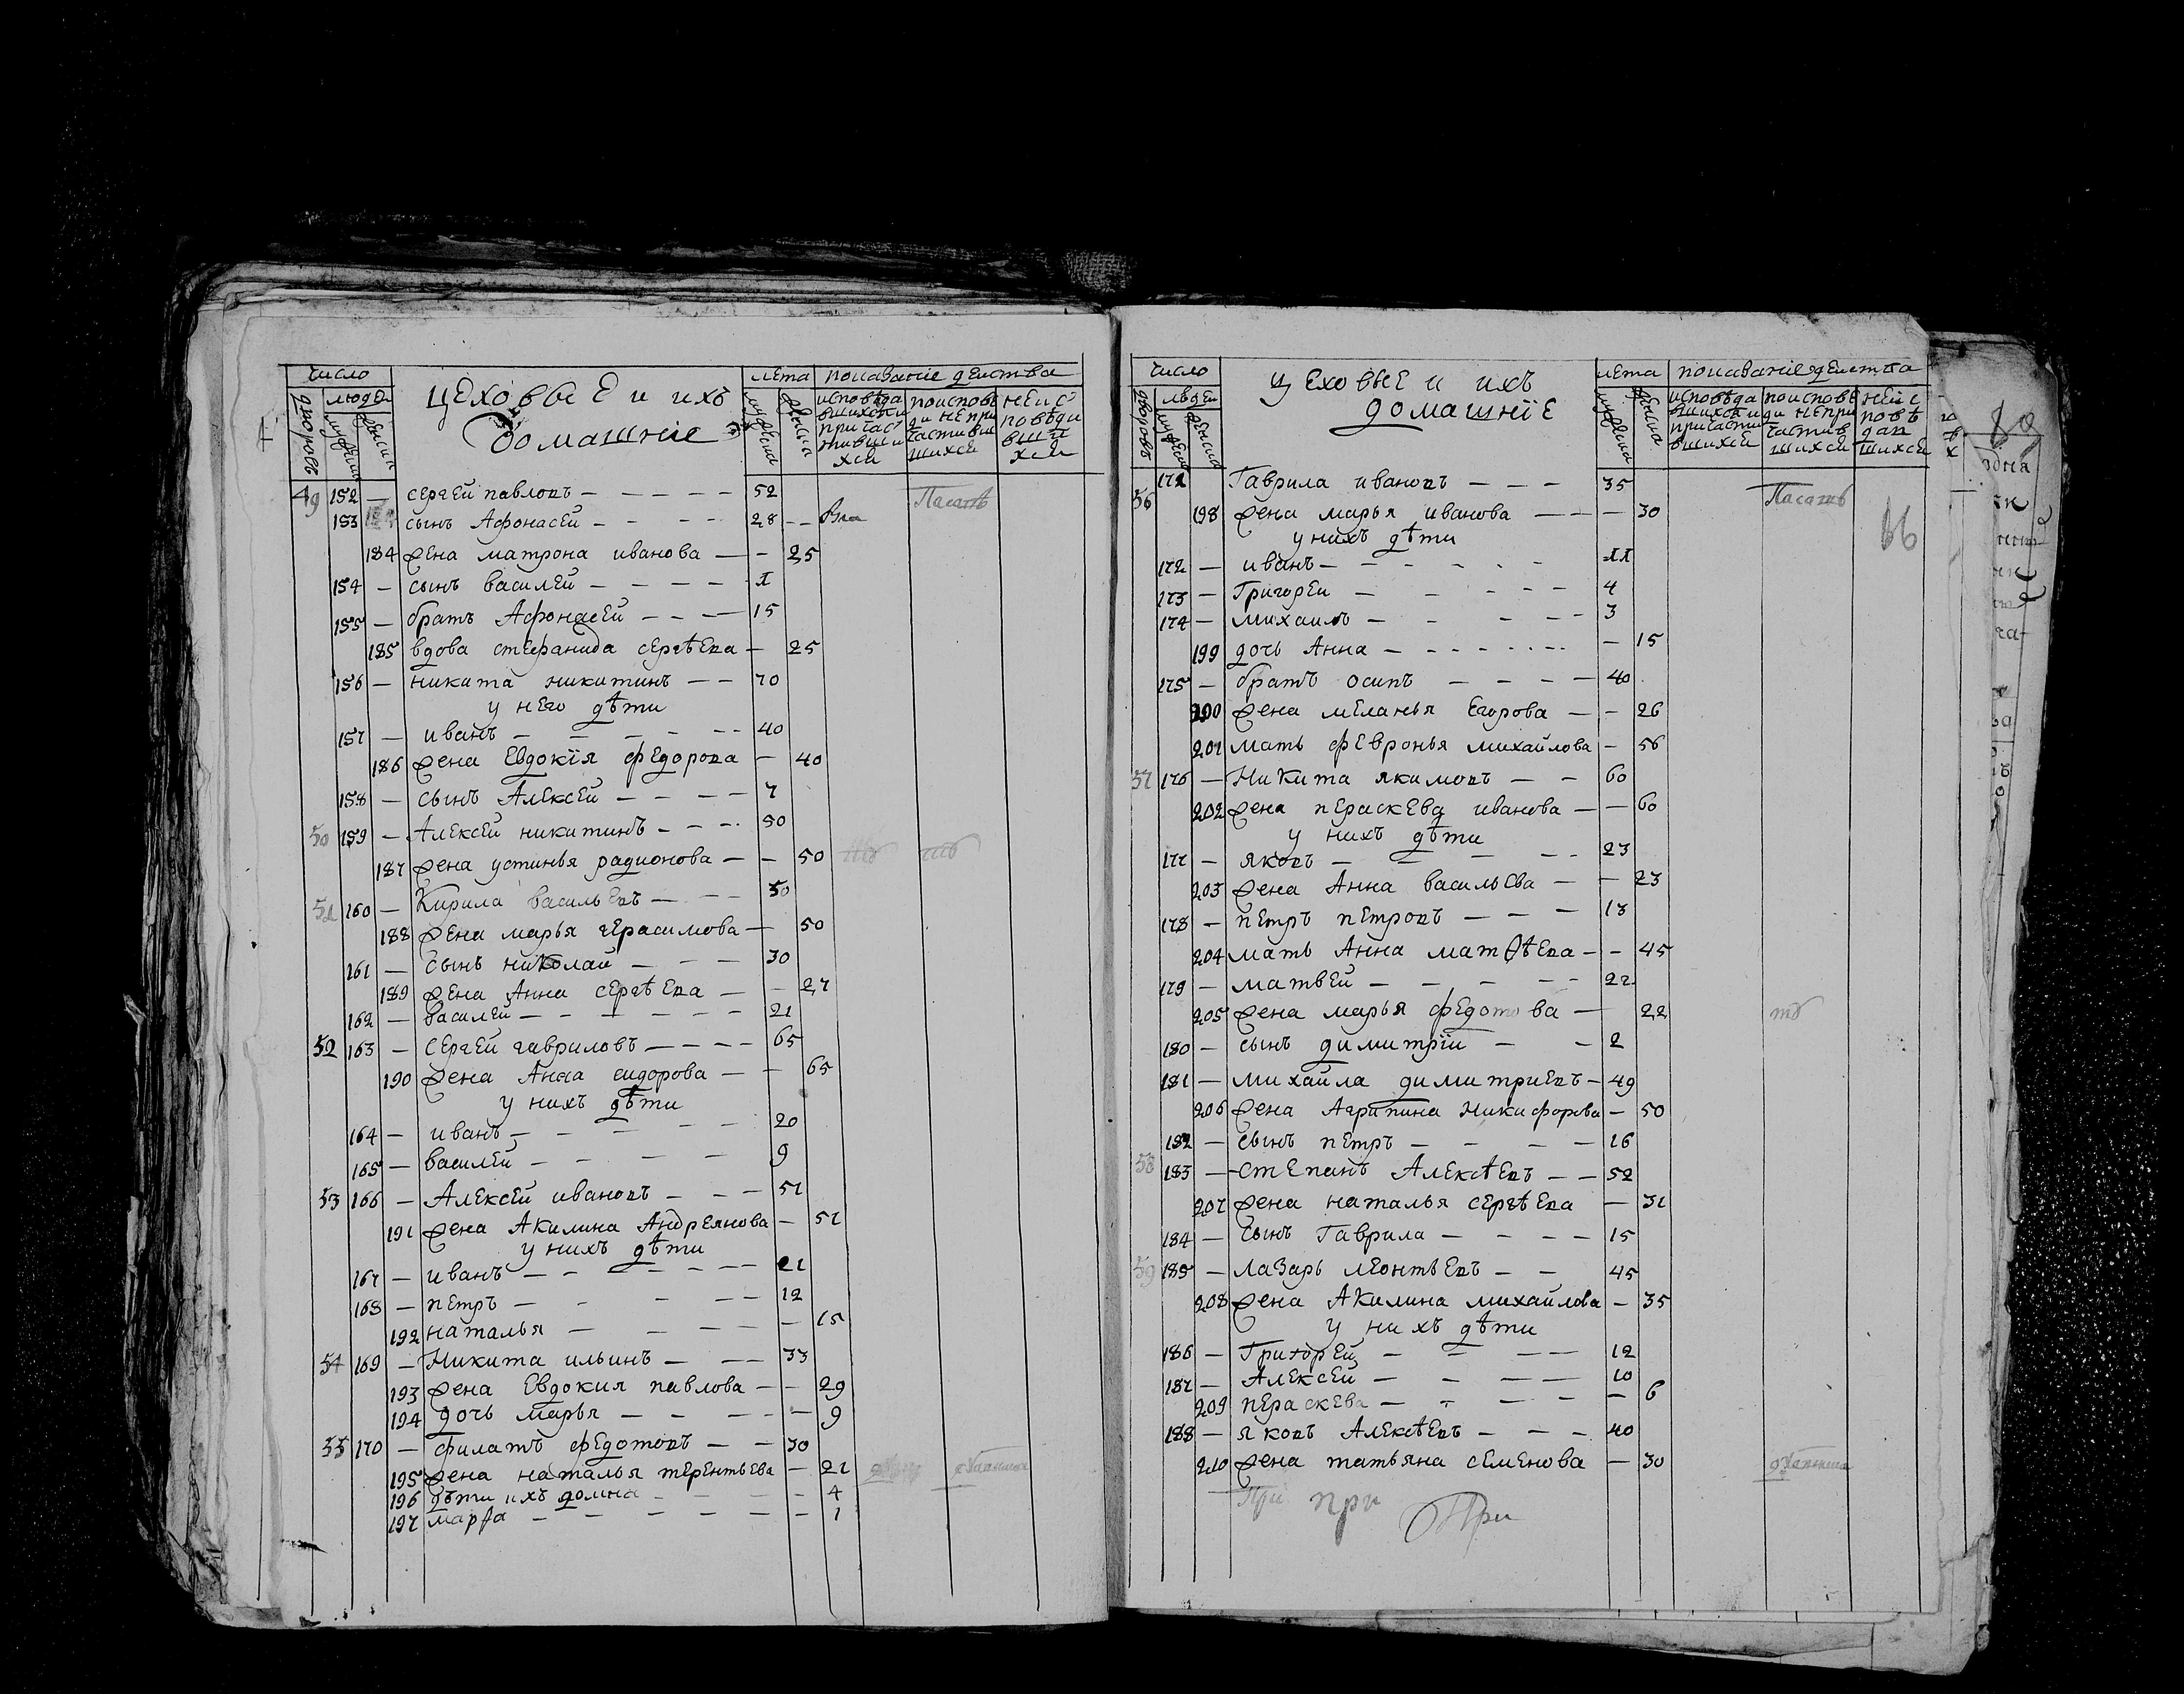 число
людей
дворовъ
мужеска
женска
цеховые и ихъ
домашніе
лета
мужеска
женска
показаніе действа
исповѣда
вшихся и
причас
тивши
хся
по испове
ди не при
частивши
шихся
не ис
поведи
вши
хся
49 152 — сергей павловъ — — — — — 52
153 сынъ Афонасей — — — — 28
184 жена матрона иванова — — 25
154 — сынъ василей — — — — I
155 — братъ Афонасей — — — 15
185 вдова стефанида сергѣева — 25
156 — никита никитинъ — — 70
у него дѣти
157 — иванъ — — — — — 40
186 жена Евдокїя федорова — 40
158 — сынъ Алексей — — — — 7
50 159 — Алексей никитинъ — — — 50
187 жена устинья радионова — — 50
51 160 — Кирила васильевъ — — — 50
188 жена марья герасимова — 50
161 — сынъ николай — — — 30
189 жена Анна сергѣева — — 27
162 — василей — — — — — — 21
52 163 — сергей гавриловъ — — — — 65
190 жена Анна сидорова — — 65
у нихъ дѣти
164 — иванъ — — — — — 20
165 — василей — — — — 9
53 166 — Алексей ивановъ — — — 51
191 жена Акилина Андреянова — 51
у нихъ дѣти
167 — иванъ — — — — — — 21
168 — петръ — — — — — 12
192 наталья — — — — — 15
54 169 — Никита ильинъ — — — 33
193 жена Евдокия павлова — — 29
194 дочь марья — — — — — 9
55 170 — филатъ федотовъ — — 30
195 жена наталья терентьева — 21
196 дѣти ихъ домна — — — — 4
197 марѳа — — — — — — 1
число
людей
дворовъ
мужеска
женска
цеховые и ихъ
домашнїе
лета
мужеска
женска
показаніе действа
исповѣда
вшихся и
причасти
вшихся
по испове
ди не при
частив
шихся
не ис
повѣ
дав
шихся
56 171 Гаврила ивановъ — — — 35
198 жена марья иванова — — — 30
у нихъ дѣти
172 — иванъ — — — — — — II
173 — Григорей — — — — — 4
174 — михаилъ — — — — — 3
199 дочь Анна — — — — — — — 15
175 — братъ осипъ — — — — 40
200 жена меланья Егорова — — 26
201 мать февронья михайлова — 56
57 176 — Никита якимовъ — — 60
202 жена пераскева иванова — — 60
у нихъ дѣти
177 — яковъ — — — — — 23
203 жена Анна васильева — — 23
178 — петръ петровъ — — — 13
204 мать Анна матѳѣева — — 45
179 — матвей — — — — — 22
205 жена марья федотова — 22
180 — сынъ димитрїи — — 2
181 — михайла димитриевъ — 49
206 жена Агрипина никифорова — 50
182 — сынъ петръ — — — — 16
58 183 — степанъ Алексѣевъ — — 52
207 жена наталья сергѣева — 31
184 — сынъ Гаврила — — — — 15
59 185 — Лазарь леонтьевъ — — 45
208 жена Акилина михайлова — 35
у нихъ дѣти
186 — Григорей — — — — 12
187 — Алексей — — — — 10
209 пераскева — — — — — 6
188 — яковъ Алексѣевъ — — — 40
210 жена татьяна семенова — 30
При при При